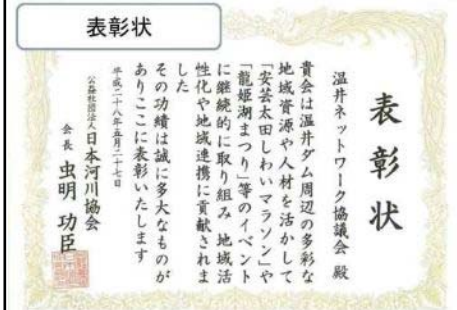 表彰状
表彰状
温井ネットワーク協議会 殿
貴会は温井ダム周辺の多彩な
地域資源や人材を活かして
「安芸太田しわいマラソン」や
「龍姫湖まつり」等のイベント
に継続的に取り組み 地域活
性化や地域連携に貢献されま
した
その功績は誠に多大なものが
ありここに表彰いたします
平成二十八年五月二十七日
公益社団法人日本河川協会
会長 虫明 功臣